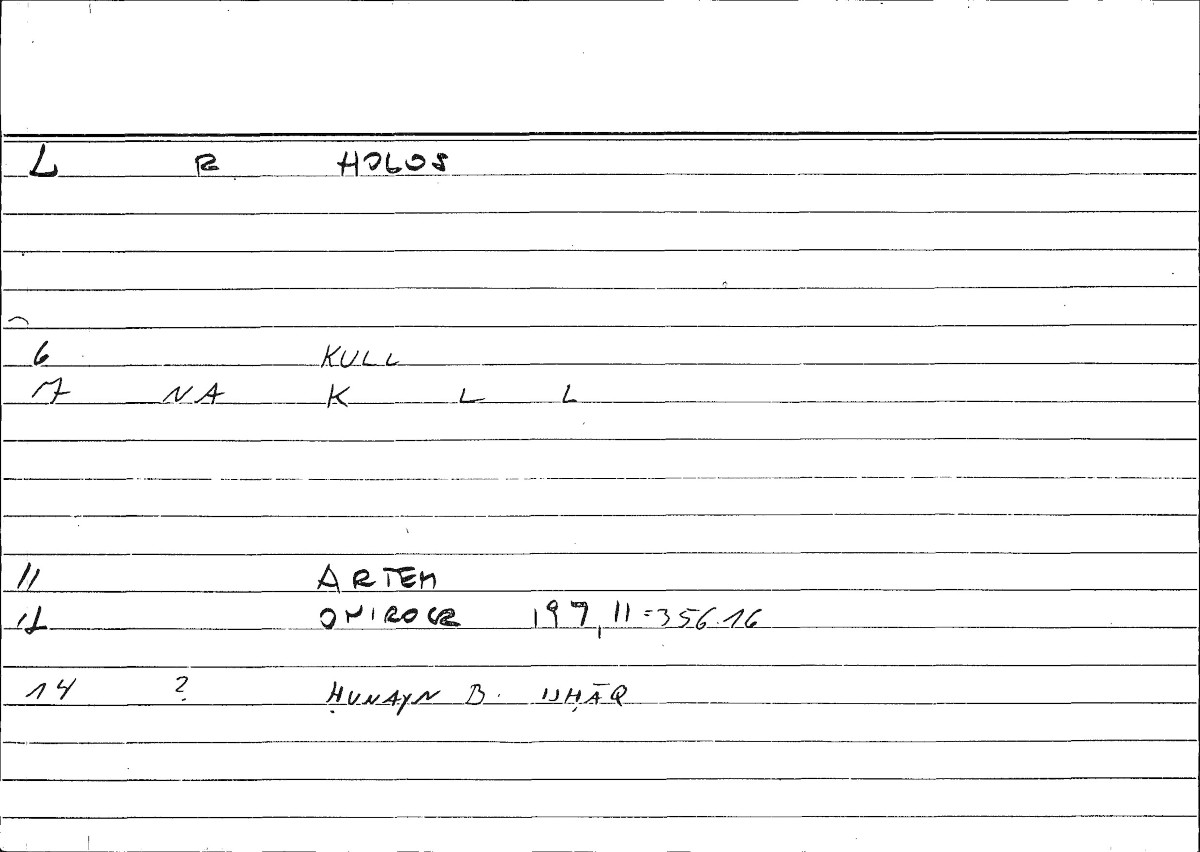 L R HOLOS
6 KULL
7 NA K L L
11 ARTEM
12 ONIROCR 197,11=356.16
14 ? ḤUNAYN B. ISḤĀQ